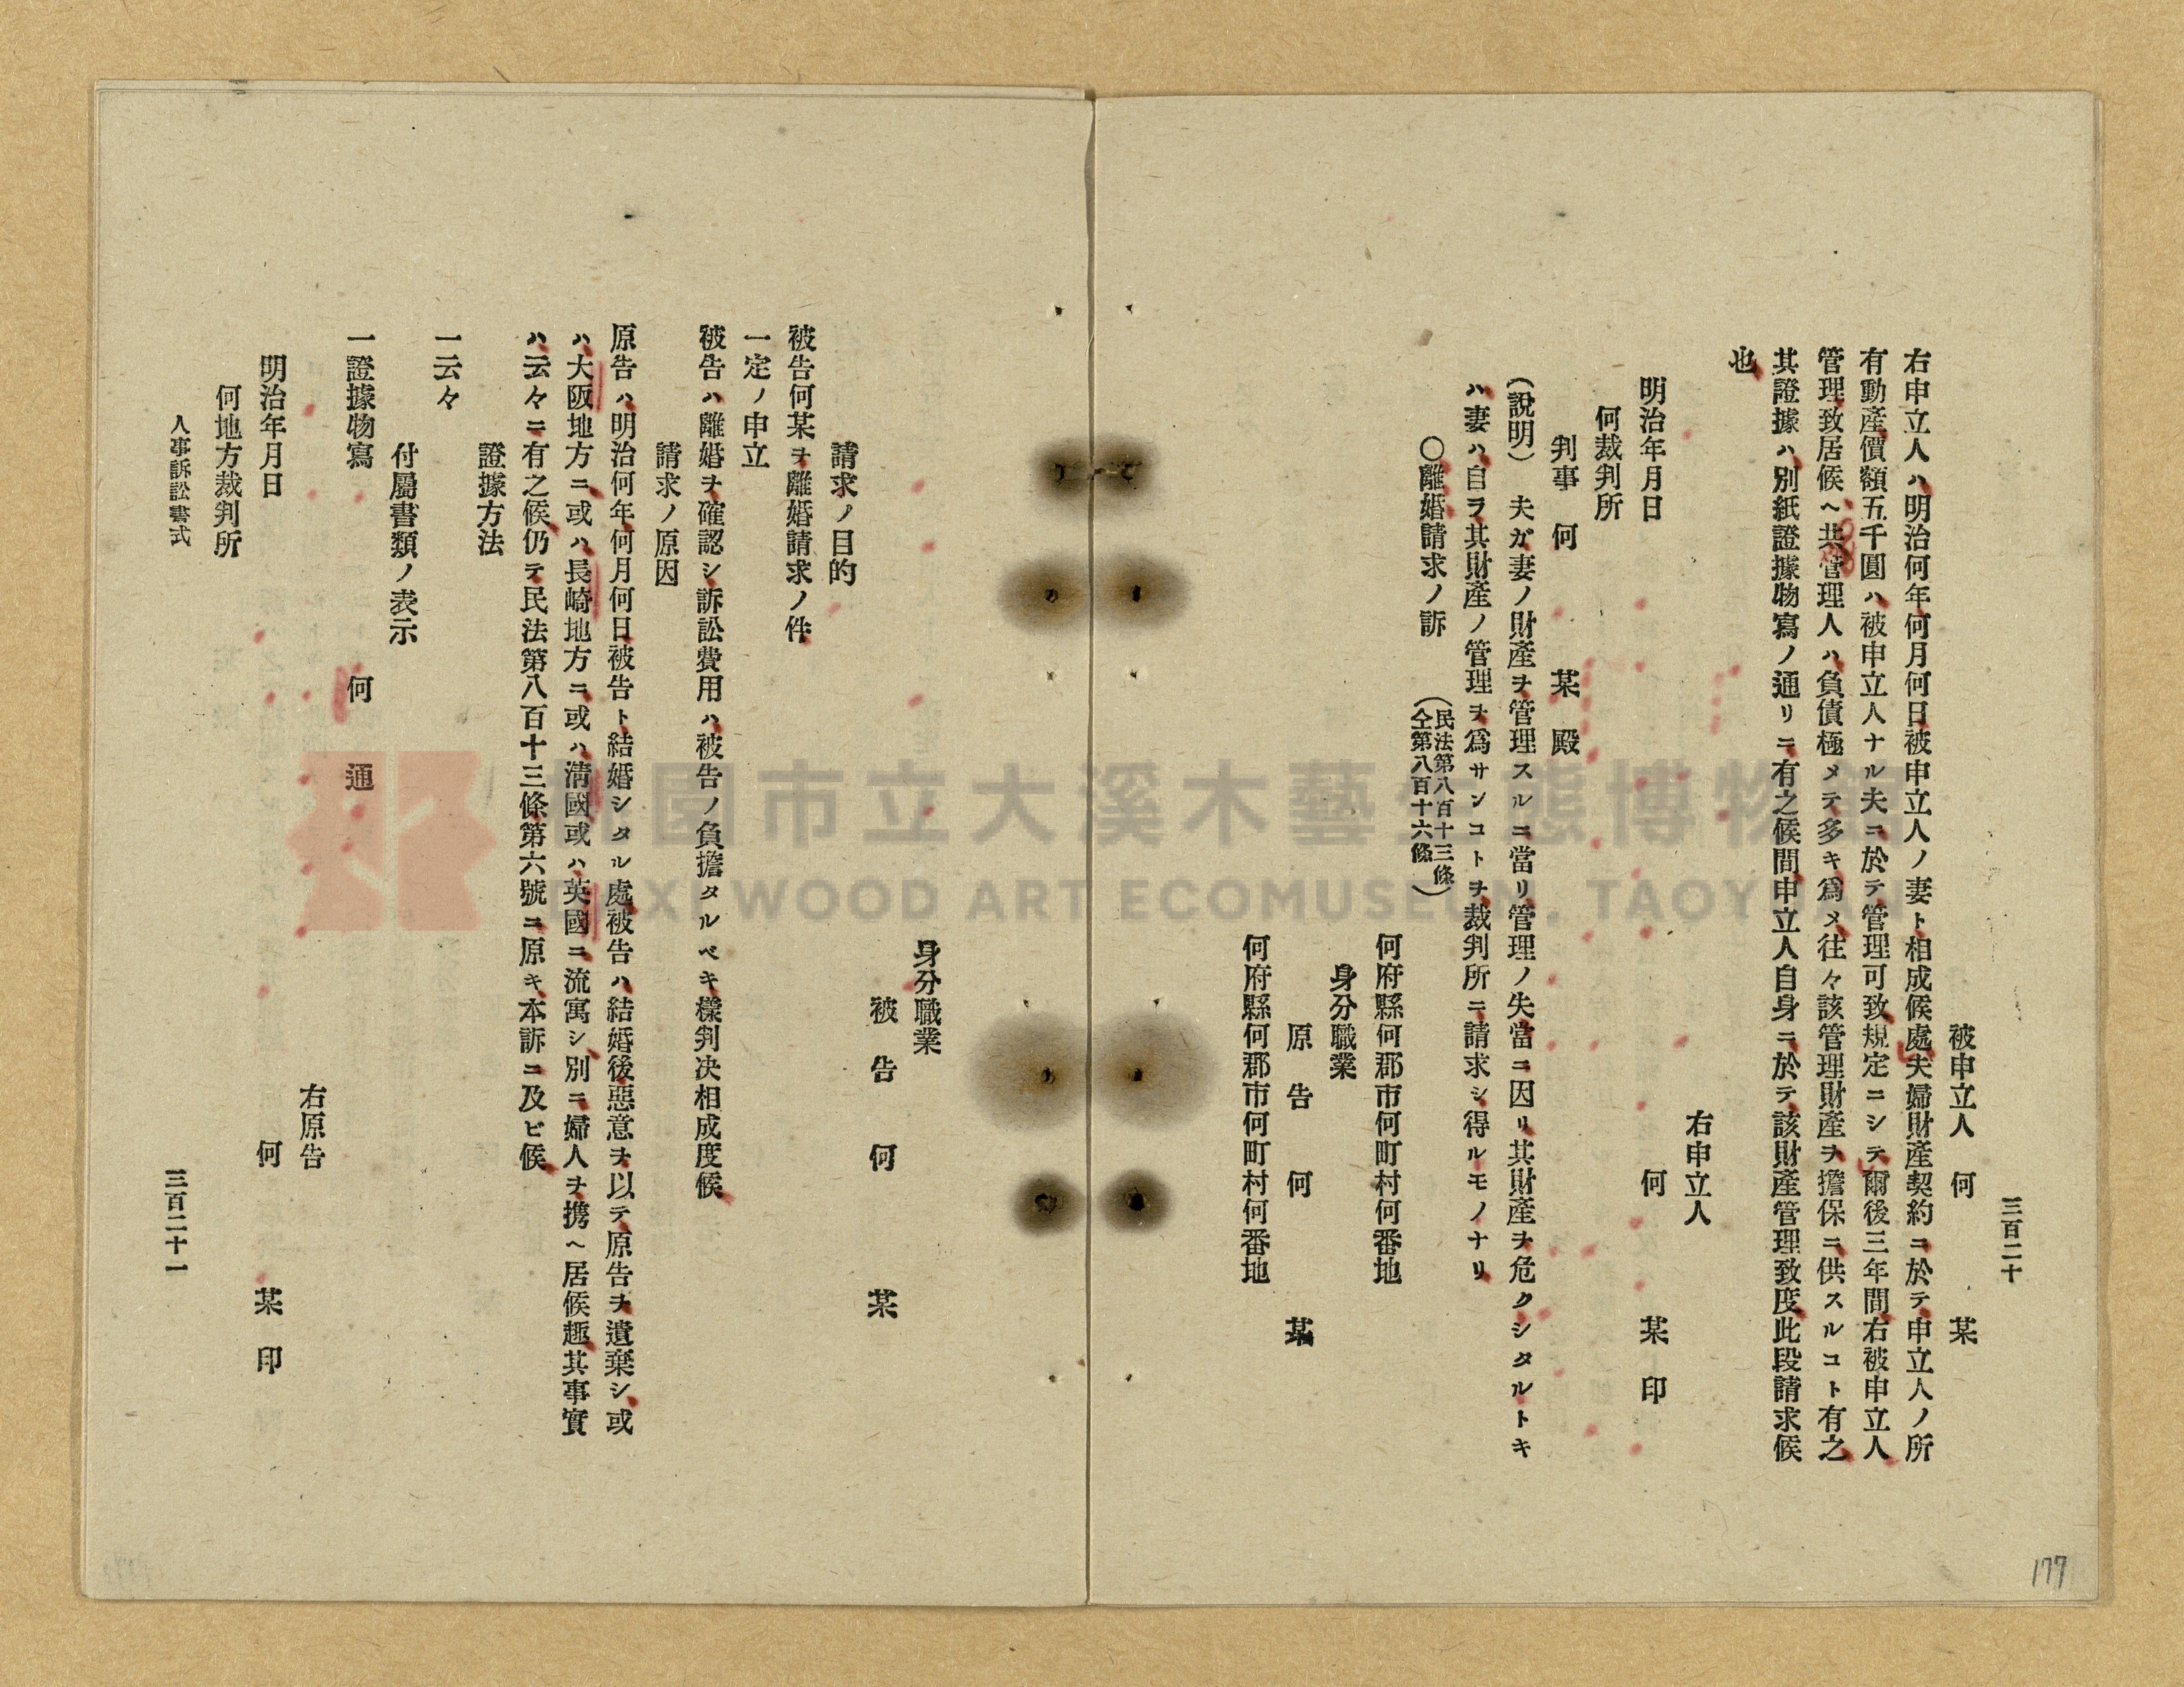 三百二十
被申立人　何　　　某
右申立人ハ明治何年何月何日被申立人ノ妻ト相成候處夫婦財產契約ニ於テ申立人ノ所
有動產價額五千圓ハ被申立人ナル夫ニ於テ管理可致規定ニシテ爾後三年間右被申立人
管理致居候ヘ共管理人ハ負債極メテ多キ爲メ往々該管理財產ヲ擔保ニ供スルコト有之
其證據ハ別紙證據物寫ノ通リニ有之候間申立人自身ニ於テ該財產管理致度此段請求候
也
右申立人
明治年月日　何　　　某　印
何裁判所
判事　何　　　某　殿
(說明)　夫ガ妻ノ財產ヲ管理スルニ當リ管理ノ失當ニ因リ其財產ヲ危クシタルトキ
ハ妻ハ自ラ其財產ノ管理ヲ爲サンコトヲ裁判所ニ請求シ得ルモノナリ
〇離婚請求ノ訴
(民法第八百十三條
仝第八百十六條)
何府縣何郡市何町村何番地
身分職業
原　告　何　　　某
何府縣何郡市何町村何番地
身分職業
被　告　何　　　某
請求ノ目的
被告何某ヲ離婚請求ノ件
一定ノ申立
被告ハ離婚ヲ確認シ訴訟費用ハ被告ノ負擔タルベキ樣判决相成度候
請求ノ原因
原告ハ明治何年何月何日被告ト結婚シタル處被告ハ結婚後惡意ヲ以テ原告ヲ遺棄シ或
ハ大阪地方ニ或ハ長崎地方ニ或ハ淸國或ハ英國ニ流寓シ別ニ婦人ヲ携ヘ居候趣其事實
ハ云々ニ有之候仍テ民法第八百十三條第六號ニ原キ本訴ニ及ビ候
證據方法
一云々
付屬書類ノ表示
一證據物寫　何　通
右原告
明治年月日　何　　　某　印
何地方裁判所
人事訴訟書式
三百二十一
177
桃園市立大溪木藝生態博物館
DAXI WOOD ART ECOMUSEUM, TAOYUAN